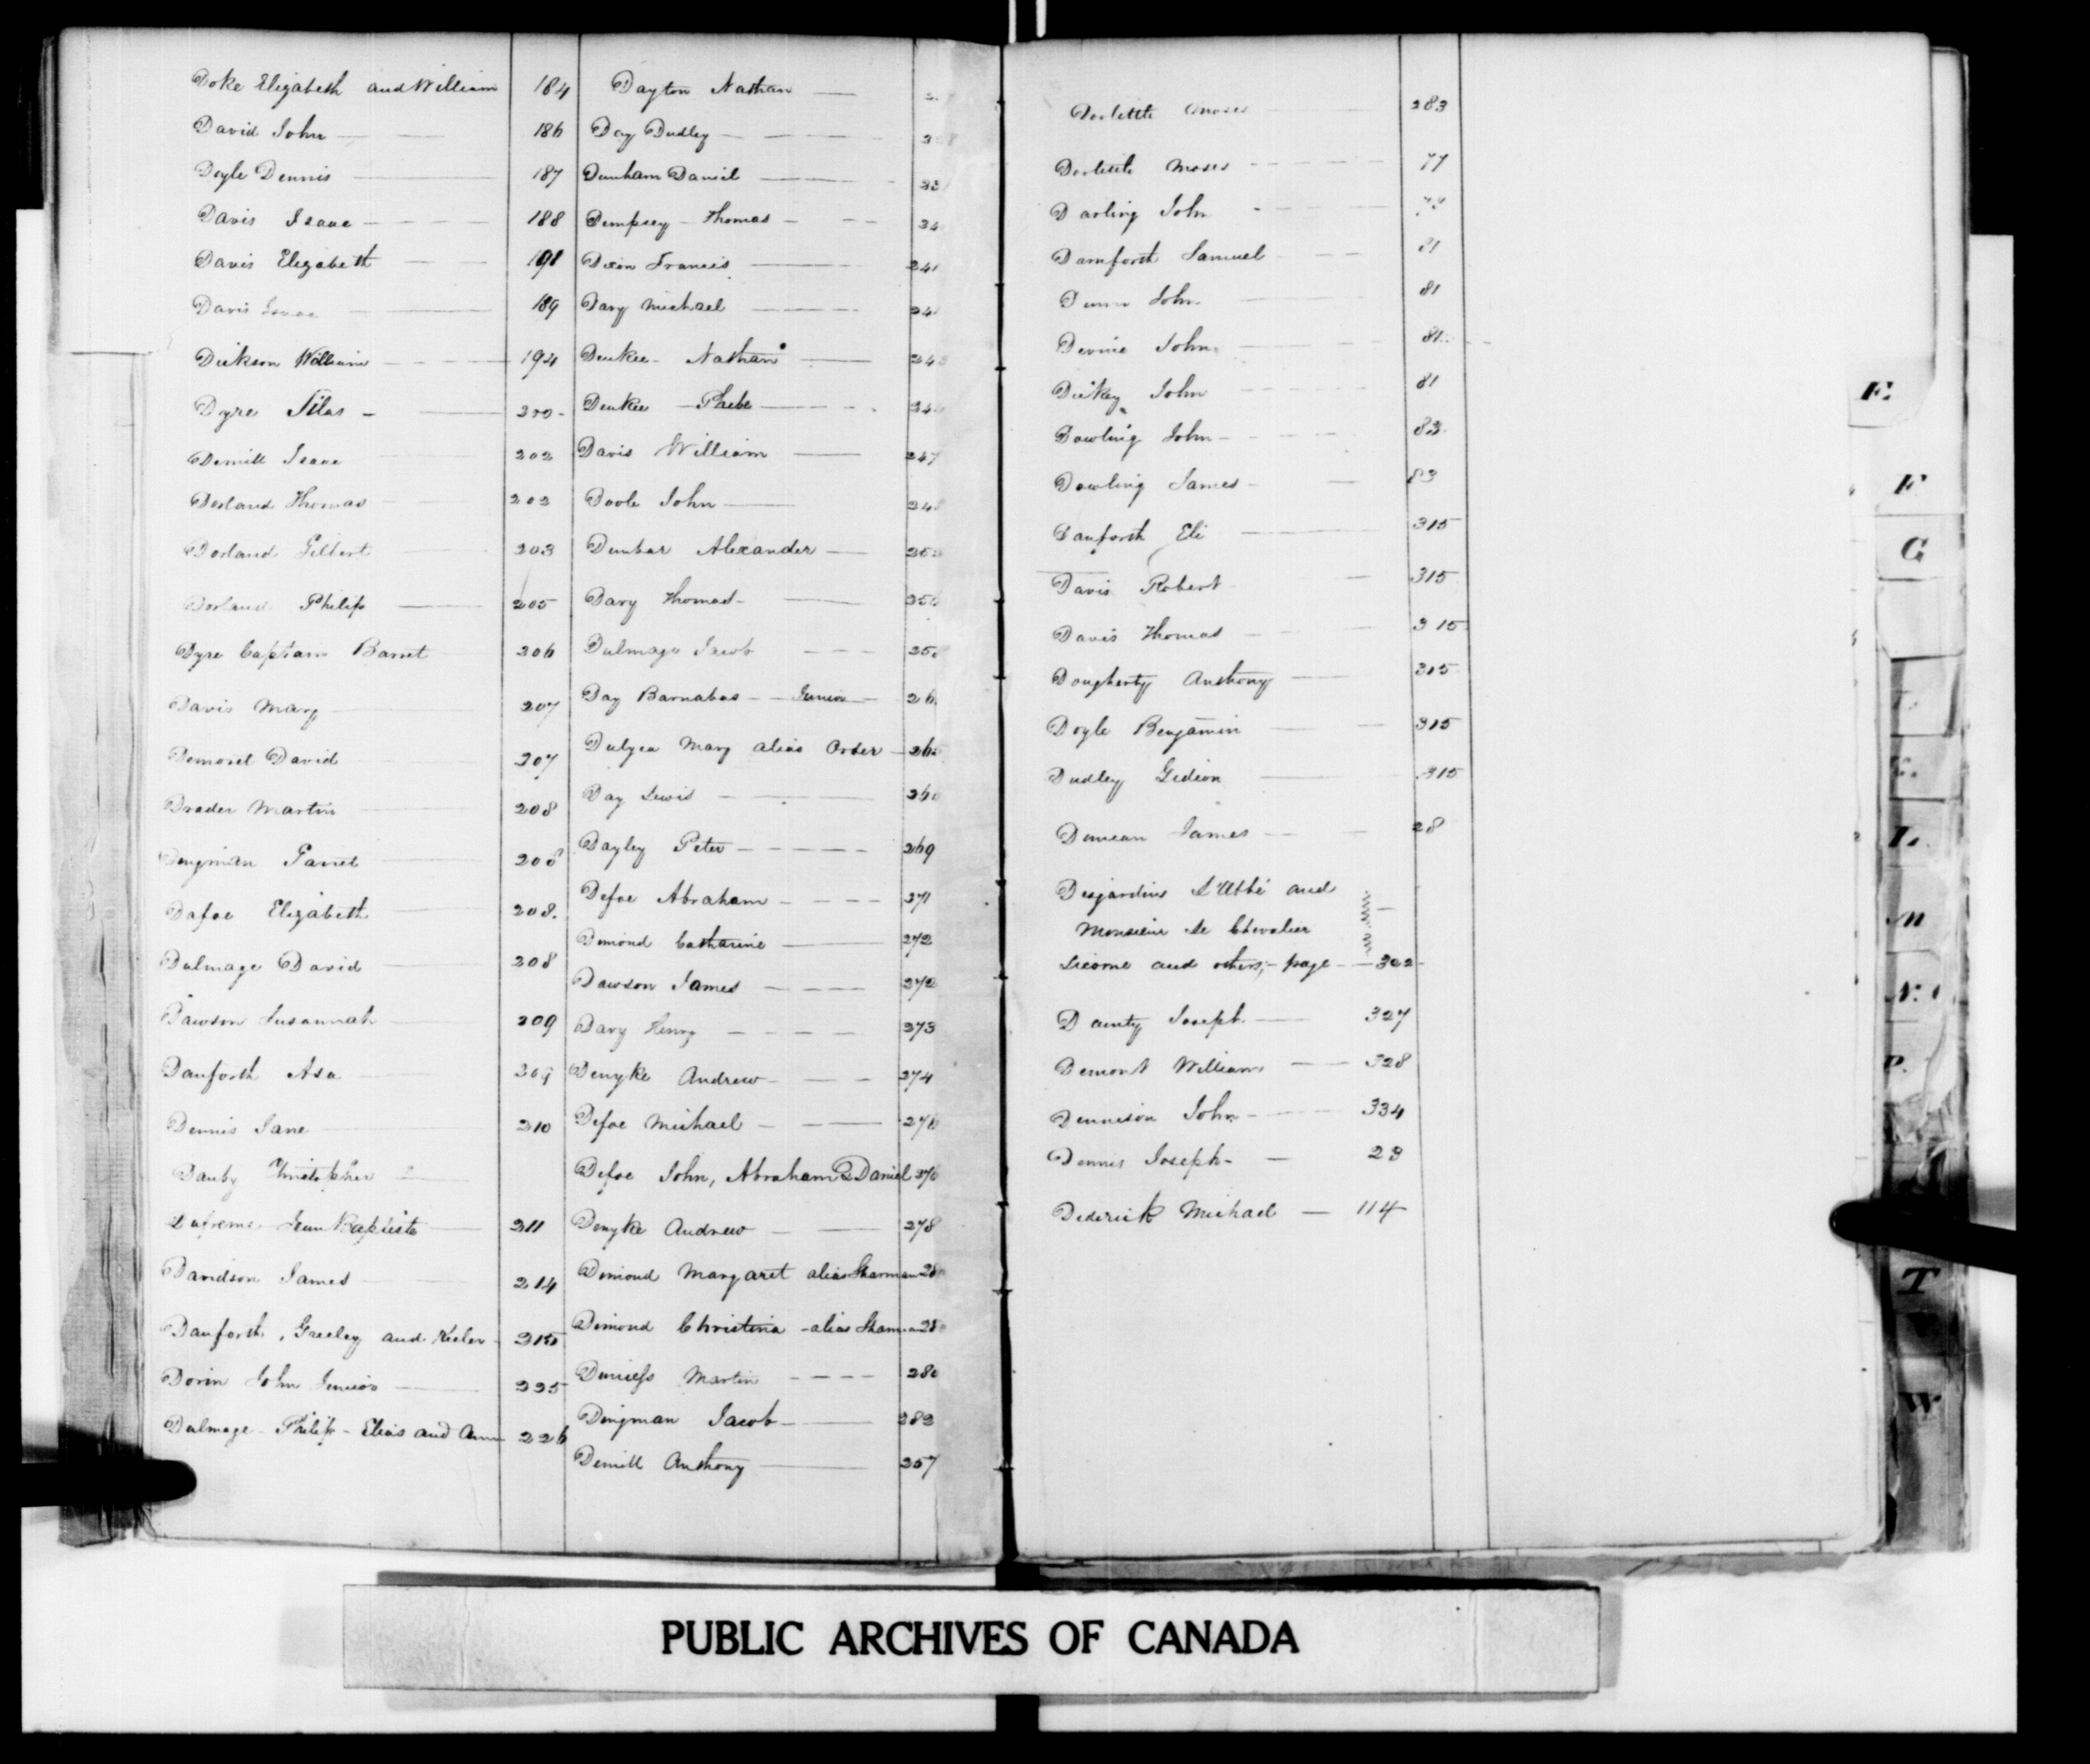 Doke Elizabeth and William 184
David John 186
Doyle Dennis 187
Davis Isaac 188
Davis Elizabeth 191
Davis Isaac 189
Dickson William 194
Dyre Silas 200
Demill Isaac 202
Dorland Thomas 202
Dorland Gilbert 203
Dorland Philip 205
Dyre Captain Barret 206
Davis Mary 207
Demorel David 207
Drader Martin 208
Dingman Garret 208
Dafoe Elizabeth 208.
Dulmage David 208
Dawson Susannah 209
Danforth Asa 209
Dennis Jane 210
Danby Christopher
Dufreme Jean Baptiste 211
Davidson James 214
Danforth, Greeley and Keeler 215
Dorin John Junior 225
Dulmage - Philip - Elias and Ann 226
Dayton Nathan
Day Dudley
Dunham Daniel
Dempsey Thomas
Dixon Francis 241
Davy Michael
Denkee Nathan
Denkee Phebe
Davis William 247
Doole John 248
Dunbar Alexander
Davy Thomas
Dulmage Jacob 258
Day Barnabas Junior
Dulyea Mary alias Orser
Day Lewis
Dayley Peter 269
Defoe Abraham 271
Dimond Catharine 272
Dawson James 272
Davy Henry 273
Denyke Andrew 274
Defoe Michael 276
Defoe John, Abraham & Daniel 276
Denyke Andrew 278
Dimond Margaret alias Sharman
Dimond Christina - alias Sharman
Daniels Martin 280
Dingman Jacob 282
Demill Anthony 257
Dorlitth Moses 283
Dorlitth Moses 77
Darling John
Darnforth Samuel 81
Dunn John 81
Devine John 81
Dickey John 81
Dowling John 83
Dowling James 83
Danforth Eli 315
Davis Robert 315
Davis Thomas 315
Dougherty Anthony 315
Doyle Benjamin 315
Dudley Gideon 315
Duncan James 28
Desjardins L'Abbé and
Monsieur de Chevalier
Licorne and others; page 302
Daunty Joseph 327
Demont William 328
Dennison John 334
Dennis Joseph 23
Dederick Michael 114
F.
F
G
L.
M
N.
P.
T
W
PUBLIC ARCHIVES OF CANADA